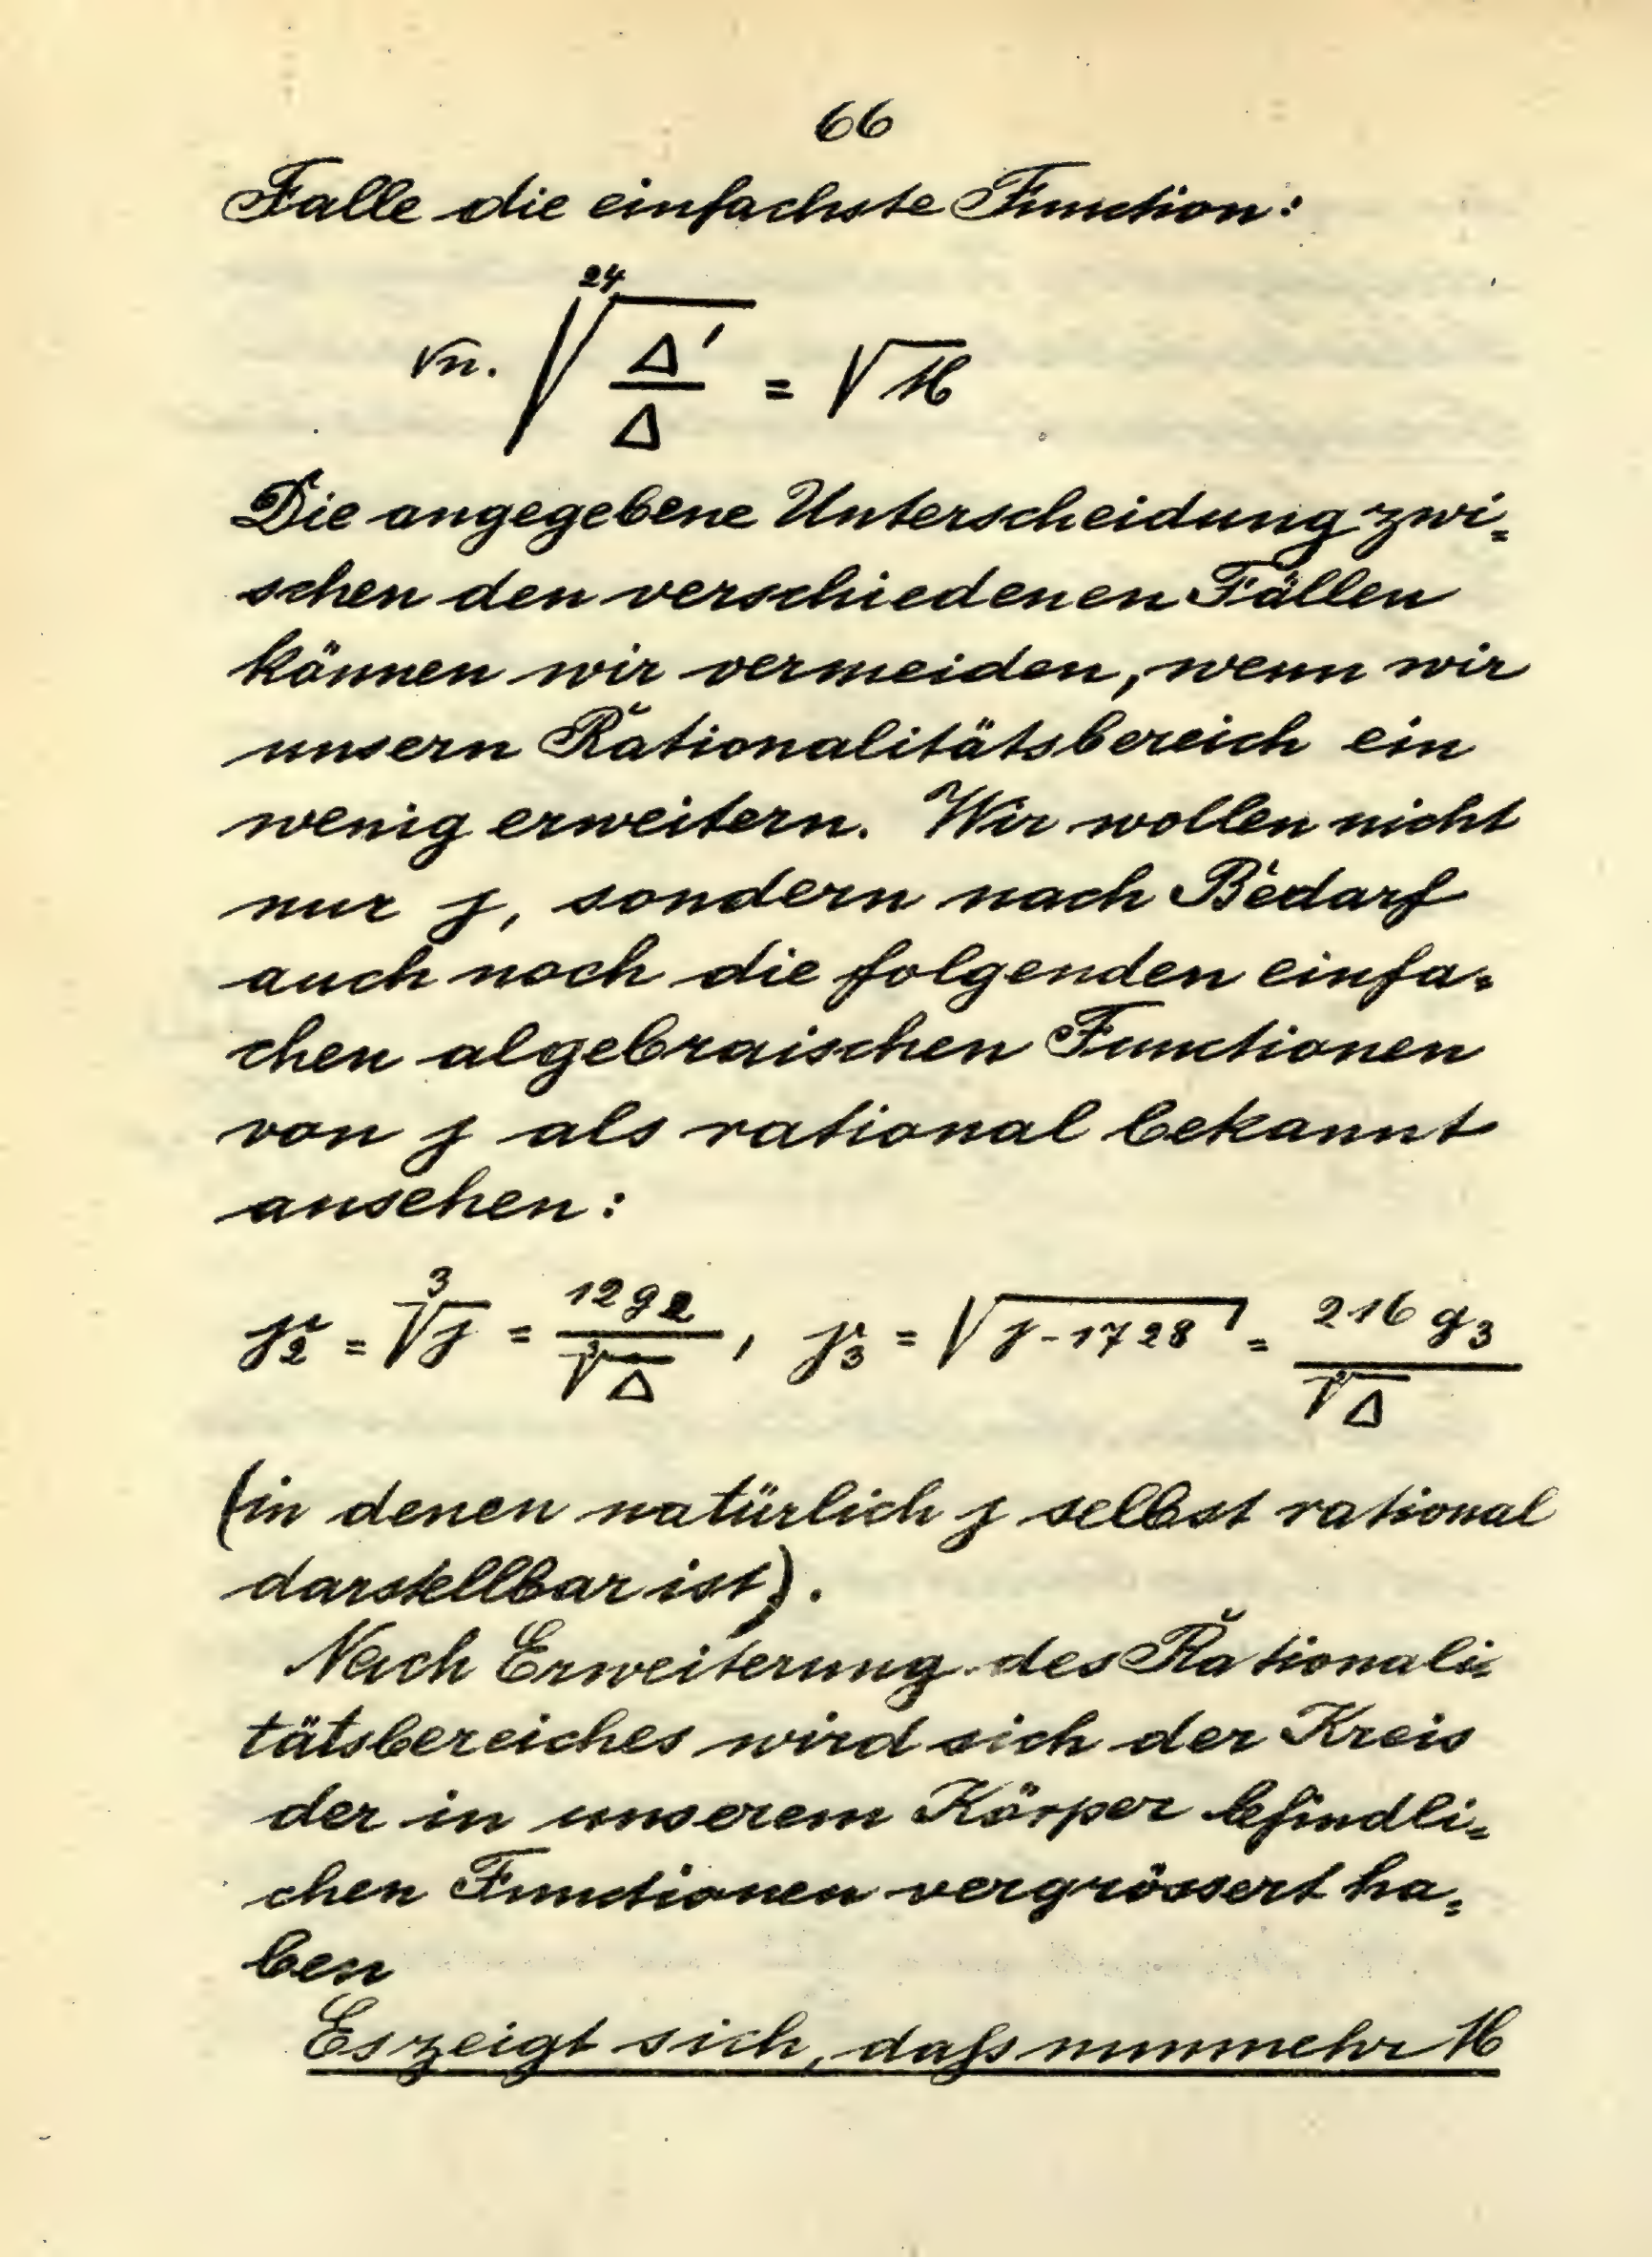 66
Falle die einfachste Function:
√n. \sqrt[24]{Δ'/Δ} = √M
Die angegebene Unterscheidung zwi=
schen den verschiedenen Fällen
können wir vermeiden, wenn wir
unsern Rationalitätsbereich ein
wenig erweitern. Wir wollen nicht
nur j, sondern nach Bedarf
auch noch die folgenden einfa=
chen algebraischen Functionen
von j als rational bekannt
ansehen:
γ₂ = ∛j = 12g₂/∛Δ, γ₃ = √(j-1728) = 216g₃/√Δ
(in denen natürlich j selbst rational
darstellbar ist).
Nach Erweiterung des Rationali=
tätsbereiches wird sich der Kreis
der in unserem Körper befindli=
chen Functionen vergrössert ha=
ben
Es zeigt sich, daſs nunmehr M